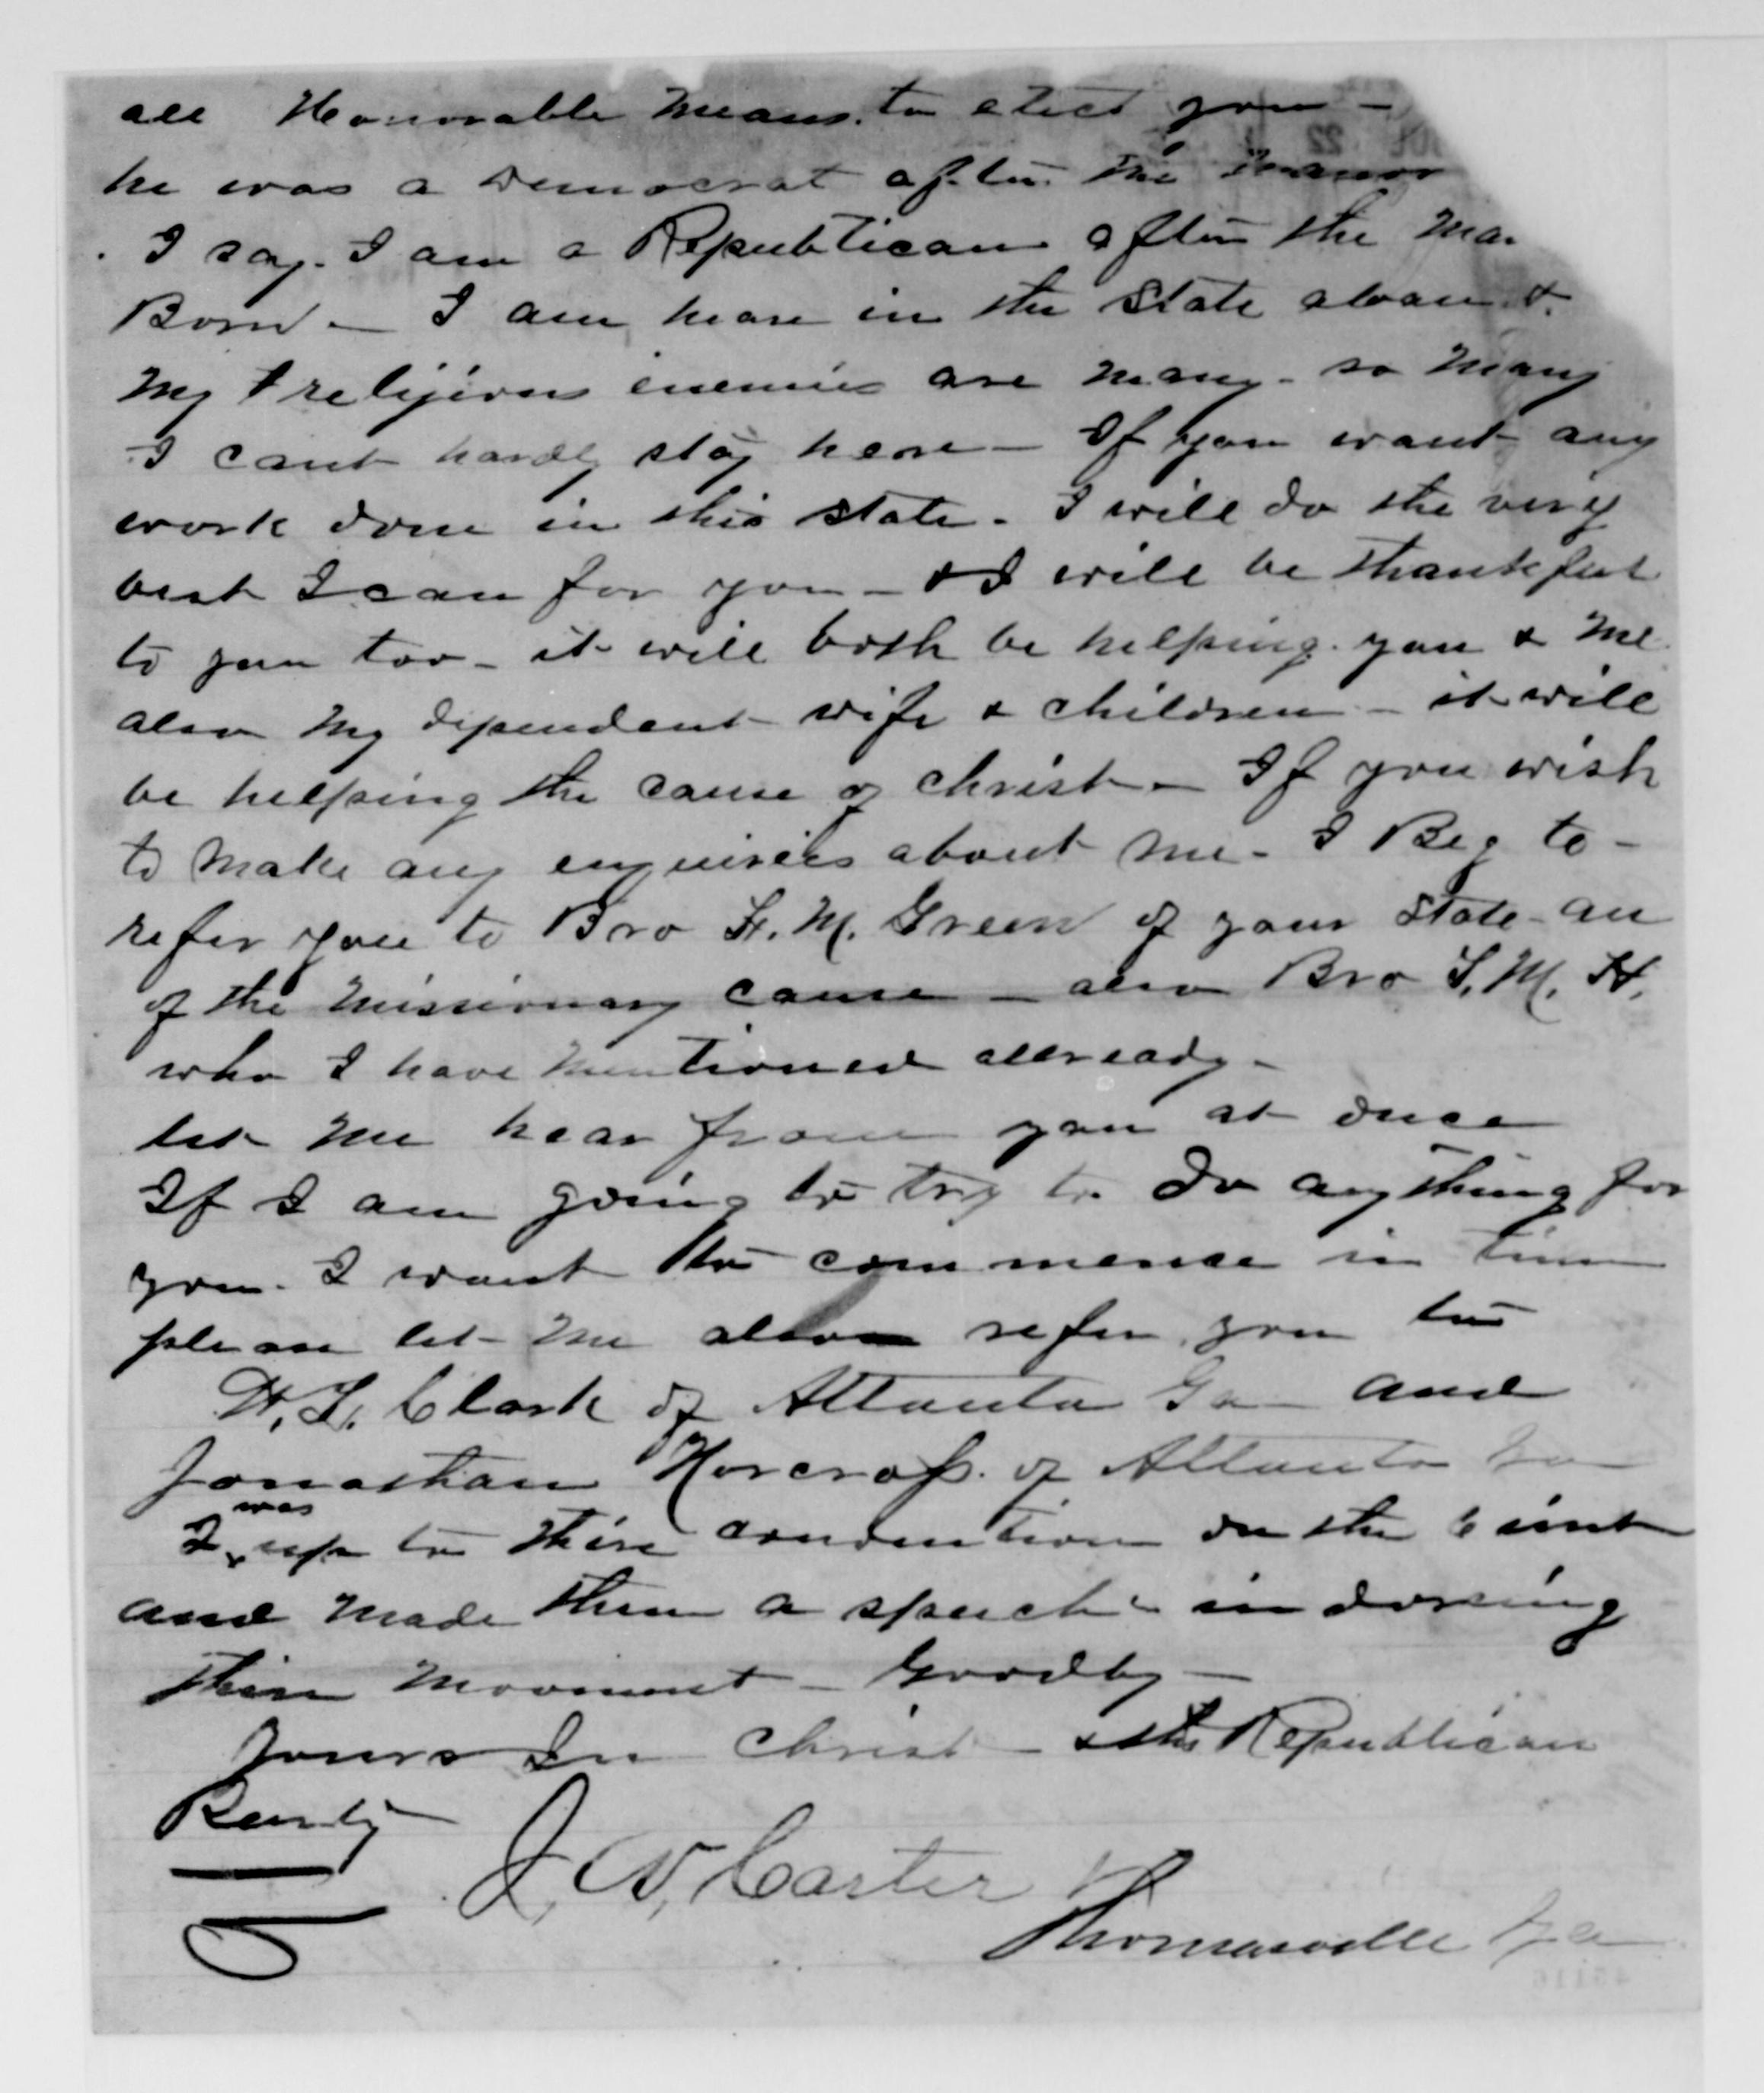 all Honorable means. to elect you -
he was a Democrat after the manor
I say. I am a Republican after the Man
Born - I am heare in the State aloan &
my religious enemies are many - so many
I cant hardly stay heare - If you want any
work done in this state. I will do the very
best I can for you - & I will be thankful
to you too - it will both be helping you & me
also my dependent wife & children - it will
be helping the cause of Christ - If you wish
to make any enquiries about me - I Beg to -
refer you to Bro F. M. Green of your State - an
of the missionary cause - also Bro T. M. H.
who I have mentioned allready -
let me hear from you at once
If I am going to try to do anything for
you. I want to commence in time
please let me also refer you to
W. L. Clark of Atlanta Ga - and
Jonathan Norcross. of Atlanta Ga
I was up to thire convention on the 6 inst
and made them a speech indorsing
thire movement - Goodby -
Yours In Christ - & the Republican
J. W. Carter
Thomasville Ga